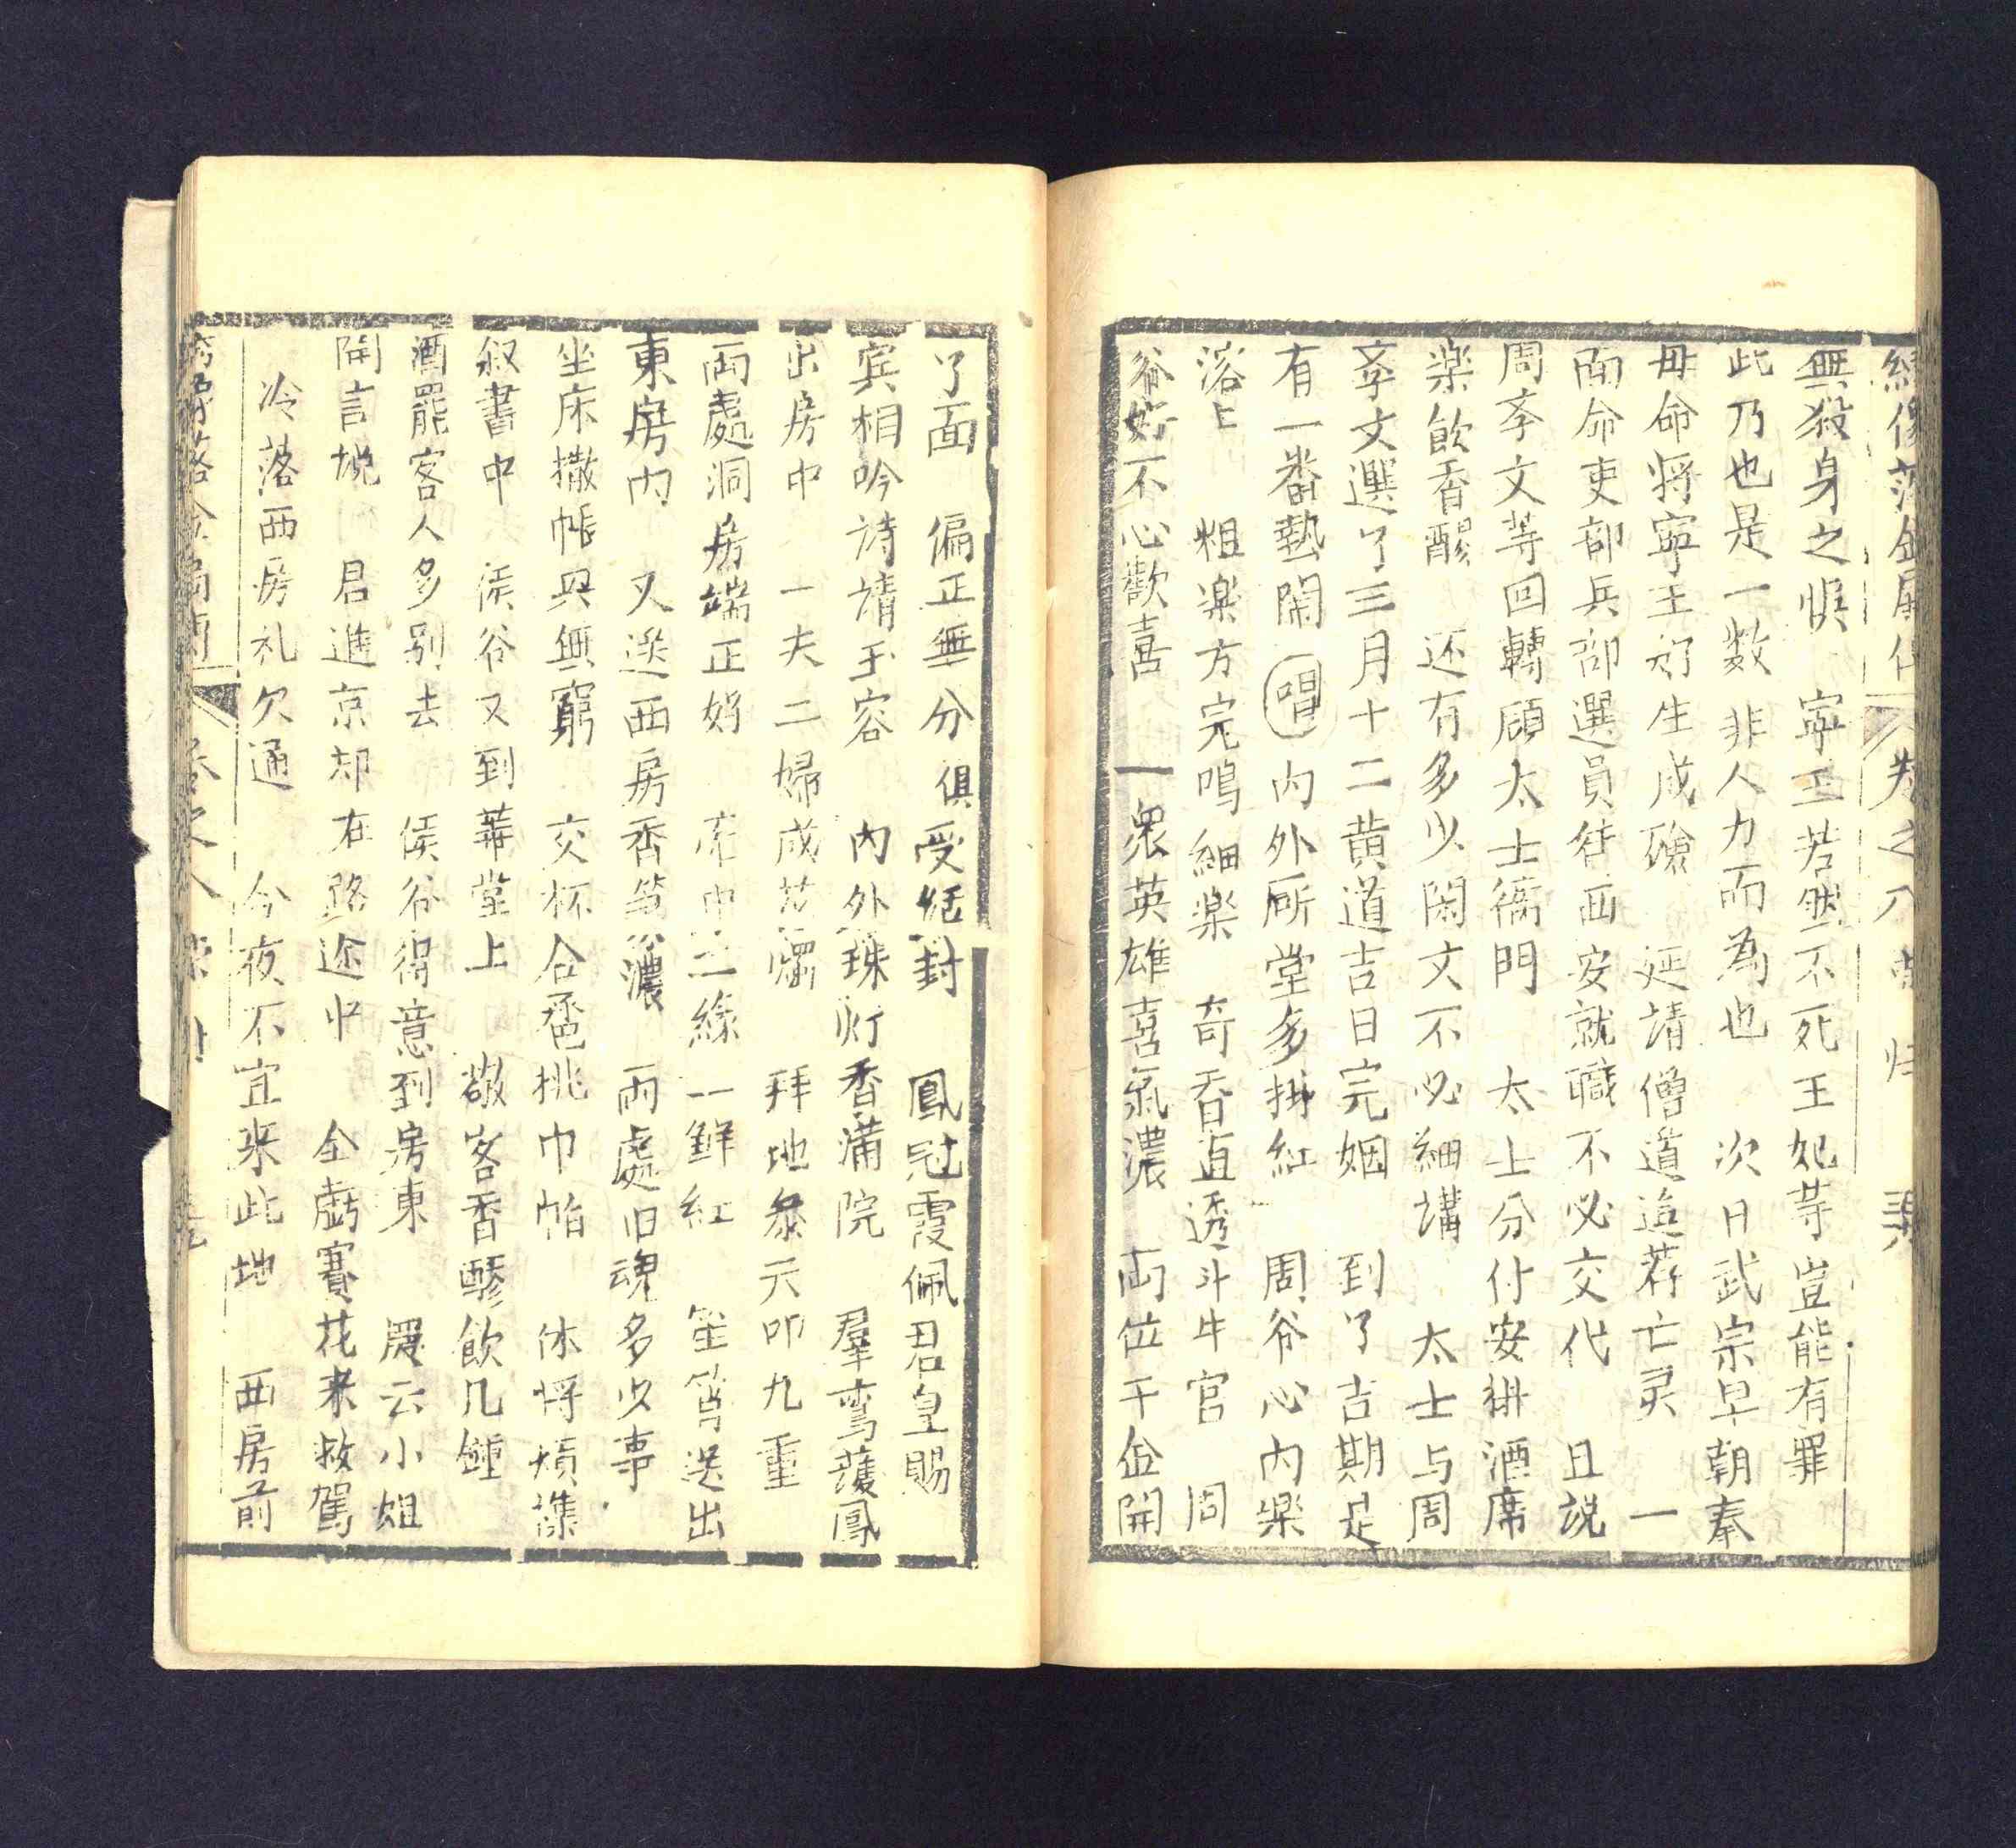 繡像落金扇 卷之八 榮归
無殺身之惧 寧王若然不死王妃等豈能有罪
此乃也是一数 非人力而為也 次日武宗早朝奏
毋命将寧王好生成殮 延請僧道追荐亡灵 一
面命吏部兵部選員徃西安就職不必交代 且説
周李文等回轉顧太士衙門 太士分付安排酒席
楽飲香醪 还有多少闲文不必細講 太士与周
李文選了三月十二黄道吉日完姻 到了吉期是
有一番熱閙 唱 内外厛堂多掛紅 周爷心内楽
溶上 粗楽方完鳴細楽 奇香直透斗牛宫 周
爷好不心歡喜 一衆英雄喜氣濃 両位千金開
了面 偏正無分俱受絰封 鳳冠霞佩君皇賜
宾相吟诗請玉容 内外珠灯香满院 羣鸾護鳳
出房中 一夫二婦成花燭 拜地叅天叩九重
両處洞房端正好 二綠一鮮紅 笙筲送出
東房内 又送西房香氣濃 両處旧魂多少事
坐床撒帳興無窮 交杯合卺挑巾帕 休将煩襍
叙書中 侯谷又到華堂上 敬客香醪飲几鍾
酒罷客人多别去 侯谷得意到房東 嚴云小姐
開言説 君進京却在路途中 全虧賽花来救駕
冷落西房礼欠通 今夜不宜来此地 西房前
繡像落金扇 卷之八 榮归